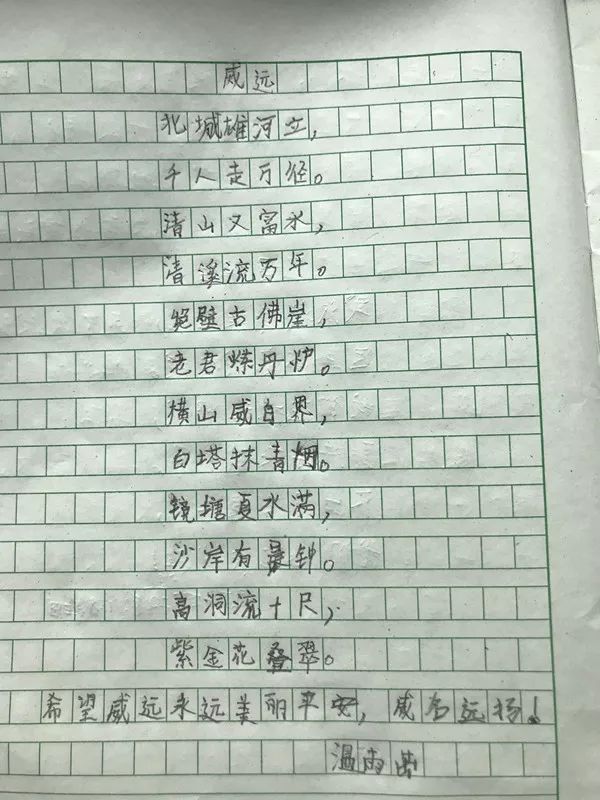 威远
北城雄河立，
千人走万径。
清山又富水，
清溪流万年。
绝壁古佛崖，
老君炼丹炉。
横山威自界，
白塔抹青烟。
镜塘夏水满，
沙岸有晨钟。
高洞流十尺，
紫金花叠翠。
希望威远永远美丽平安，威名远扬！
温雨